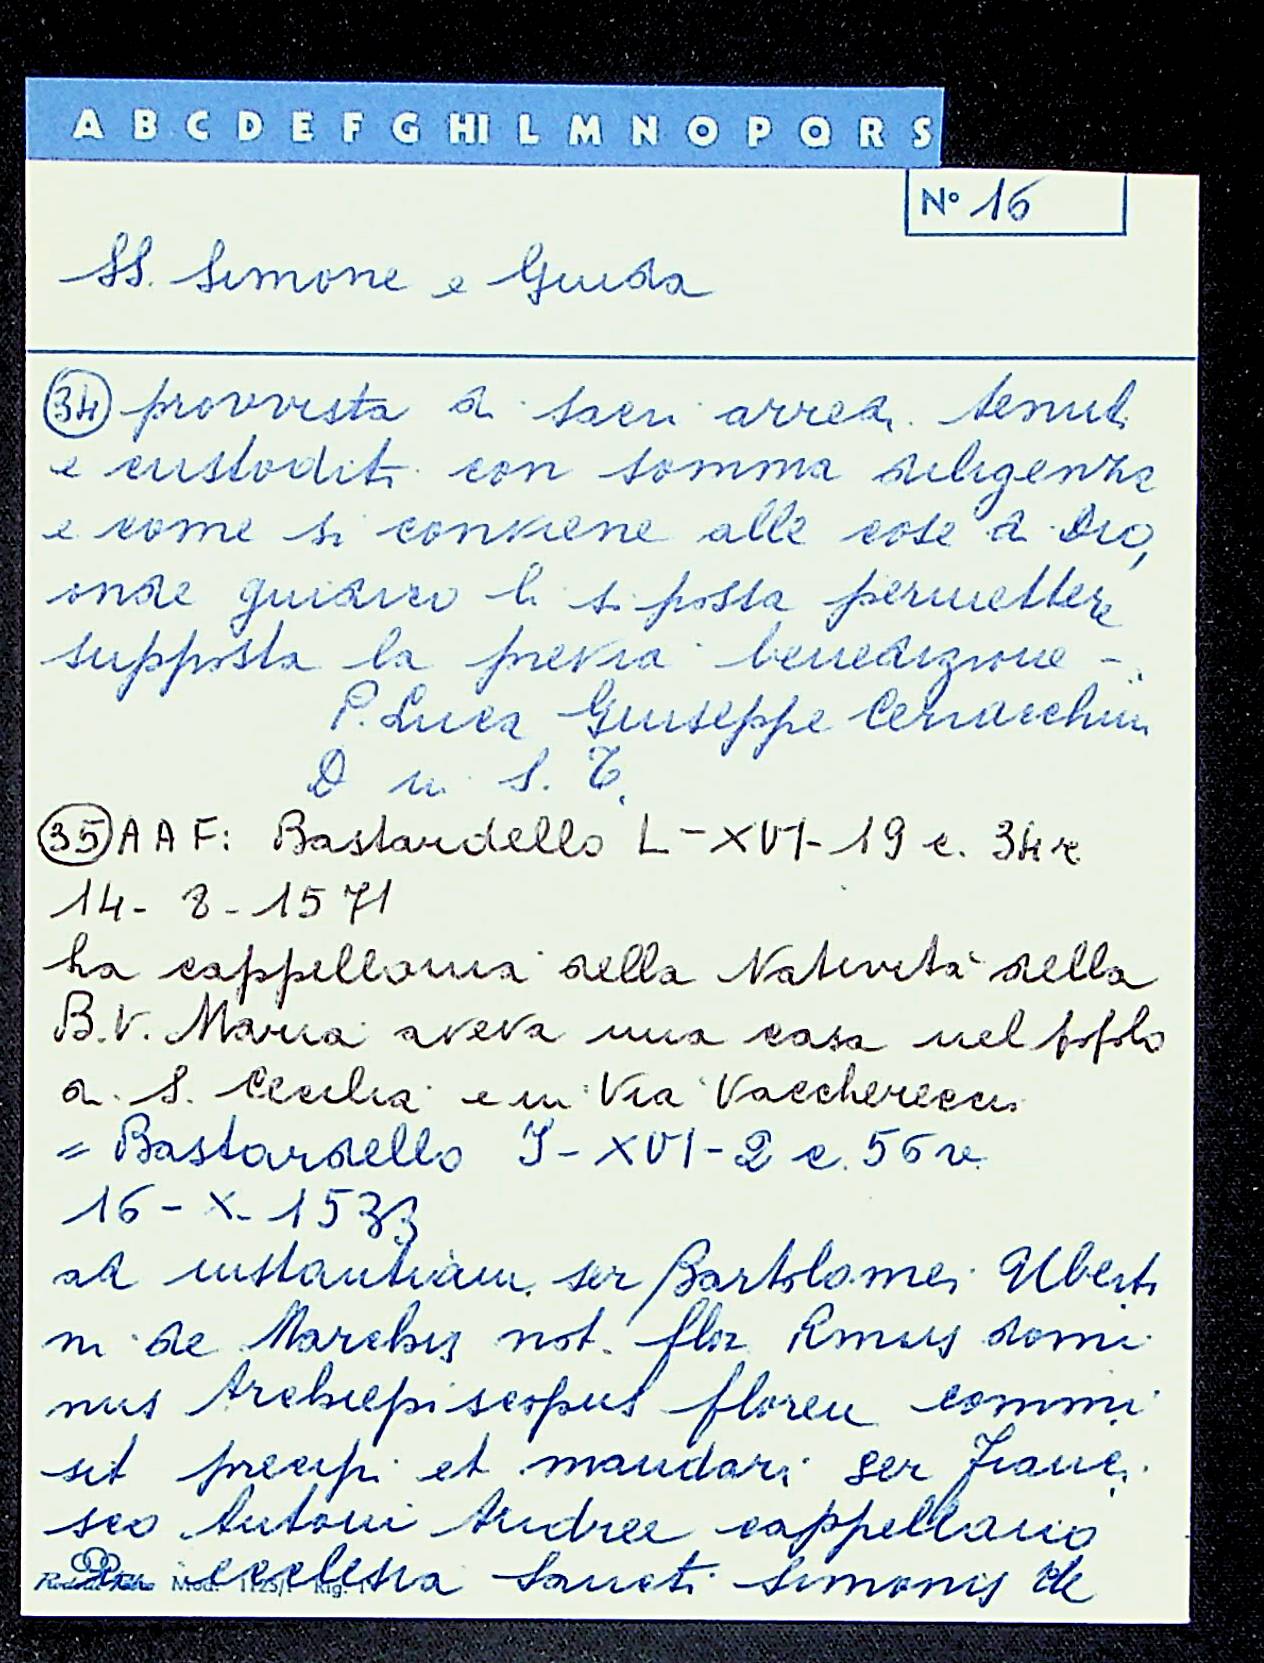 A B C D E F G HI L M N O P Q R S
N° 16
SS. Simone e Giuda
34 provvista di sacri arredi tenuti
e custoditi con somma diligenza
e come si conviene alle cose di Dio,
onde giudico li si possa permettere
supposta la previa benedizione -.
P. Luca Giuseppe Cerracchini
D in S. T.
35 A A F: Bastardello L-XVI-19 c. 34r
14- 8-1571
La cappellania della Natività della
B.V. Maria aveva una casa nel popolo
di S. Cecilia e in Via Vacchereccia
= Bastardello I-XVI-2 c. 56v.
16-X-1533
ad instantiam ser Bartolomei Uberti
ni de Marchis not. flor Rmus domi
nus Archiepiscopus floren commi
sit precipi et mandari ser Franci
sco Antoni Andree cappellano
in ecclesia Sancti Simonis de
Mod. 1125/ Rig. 1